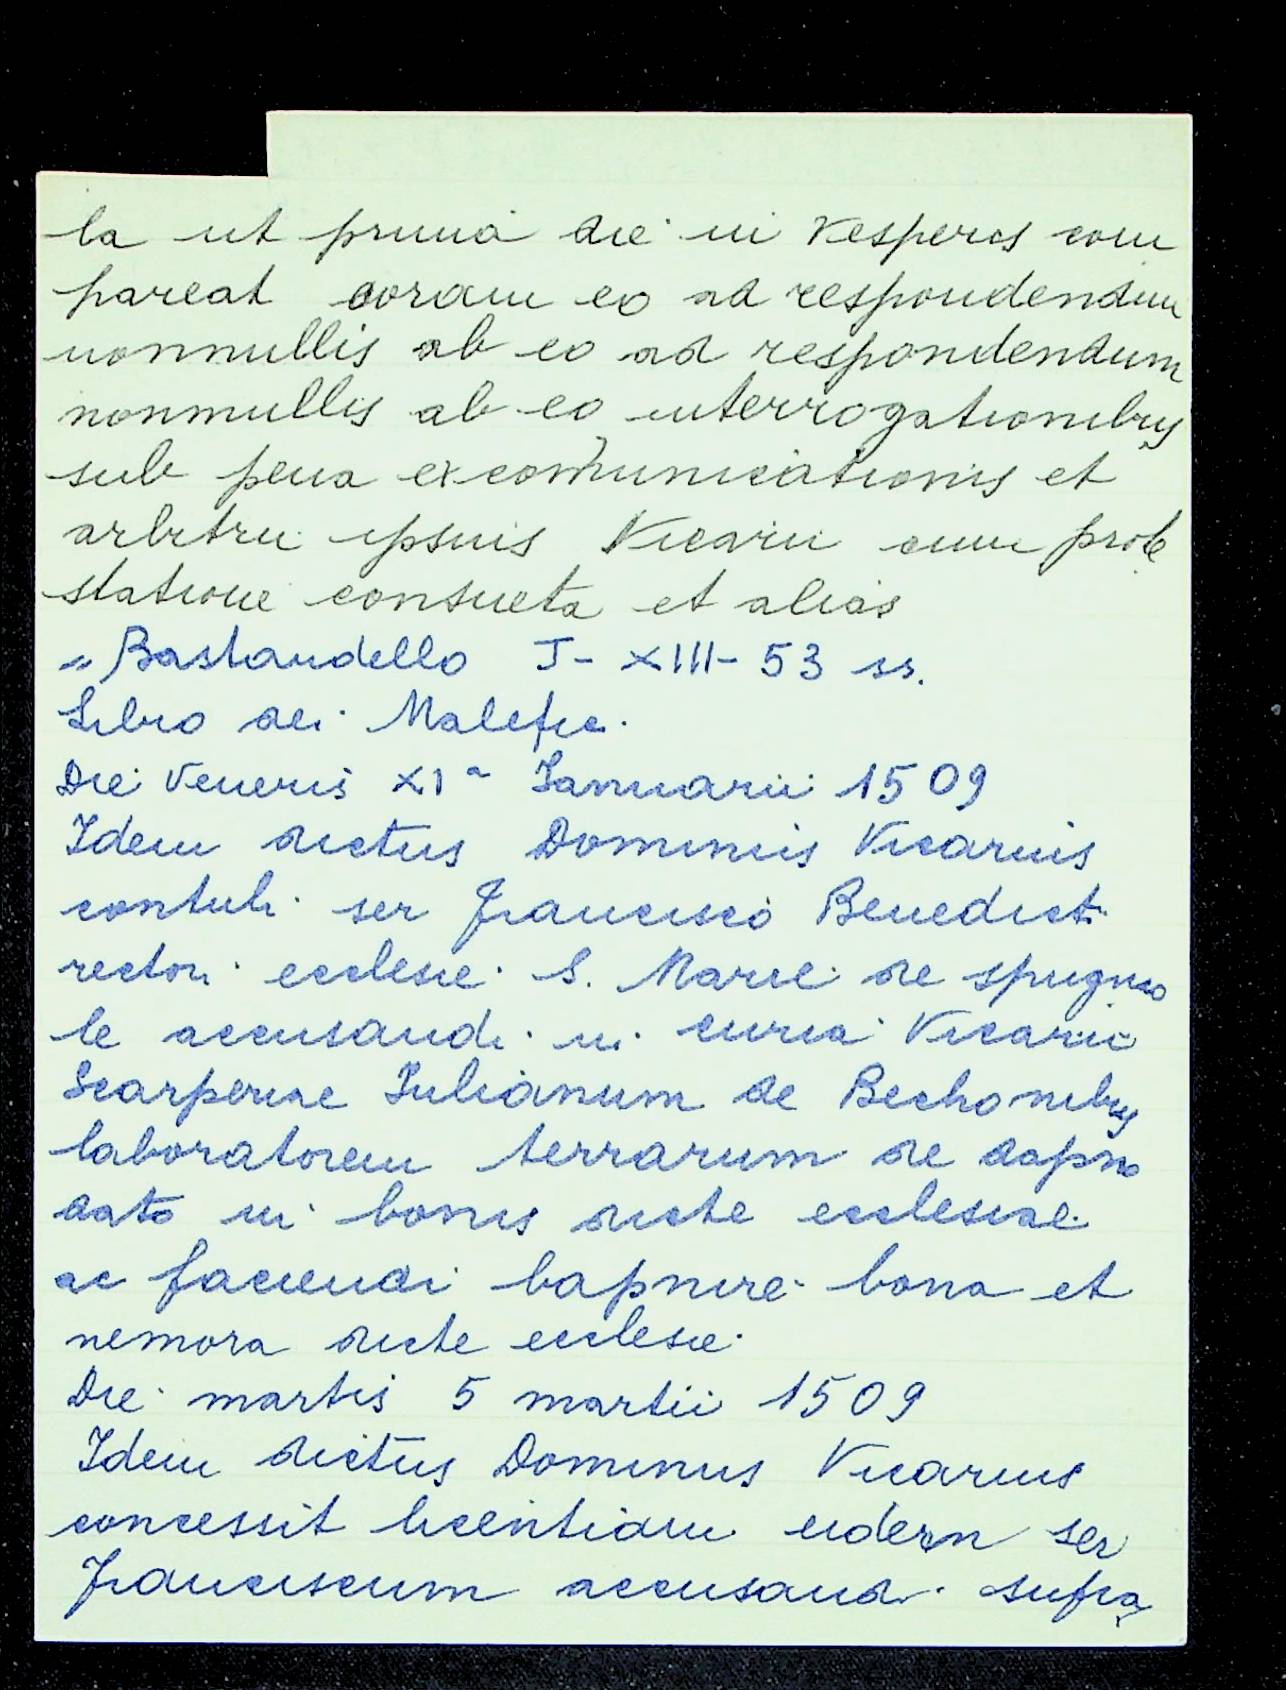 la ut prima die in Vesperis com
pareat coram eo ad respondendum
nonnullis ab eo ad respondendum
nonnullis ab eo interrogationibus
sub pena excomunicationis et
arbitrii ipsius Vicarii cum prote
statione consueta et alias
"Bastardello I- XIII- 53 ss.
Libro dei Malefic.
Die Veneris XIa Ianuarii 1509
Idem dictus Dominus Vicarius
contuli ser Francisco Benedicti
rectori ecclesie S. Marie de spugno
le accusandi in curia Vicarii
Scarperiae Iulianum de Bechonibus
laboratorem terrarum de dapno
dato in bonis dicte ecclesiae
ac faciendi bapnire bona et
nemora dicte ecclesie
Die martis 5 martii 1509
Idem dictus Dominus Vicarius
concessit licentiam eidem ser
Franciscum accusandi supra